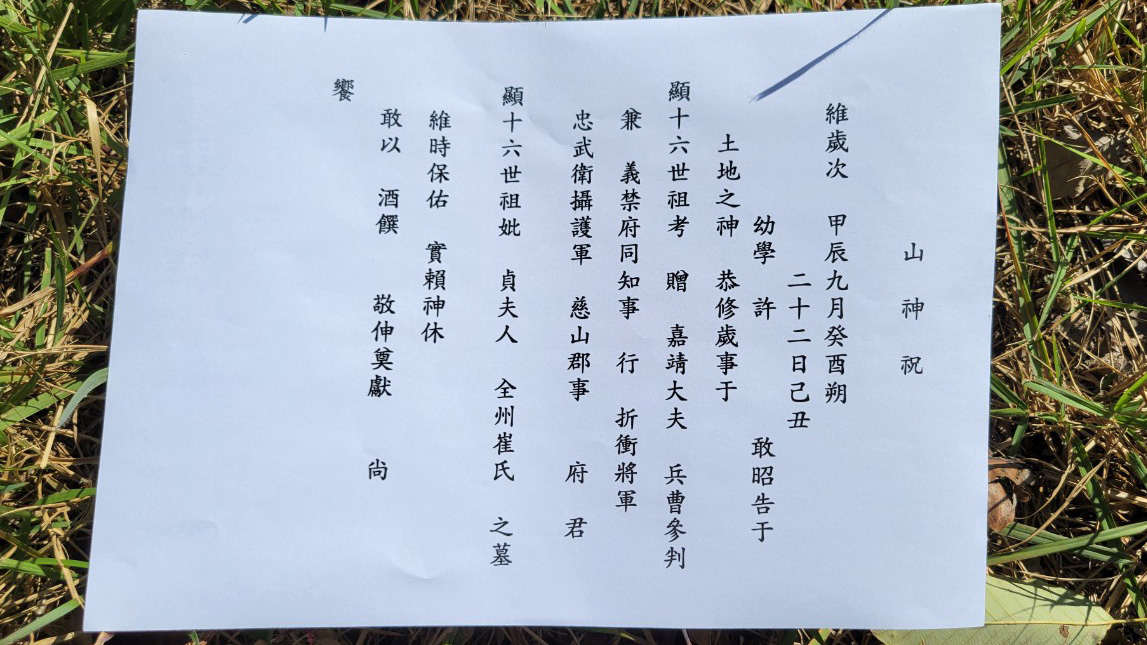 山 神 祝
維歲次 甲辰九月癸酉朔
二十二日己丑
幼學 許 敢昭告于
土地之神 恭修歲事于
顯十六世祖考 贈 嘉靖大夫 兵曹參判
兼 義禁府同知事 行 折衝將軍
忠武衛攝護軍 慈山郡事 府 君
顯十六世祖妣 貞夫人 全州崔氏 之墓
維時保佑 實賴神休
敢以 酒饌 敬伸奠獻 尙
饗